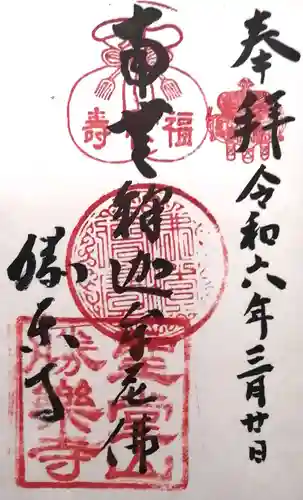 奉拝
令和六年三月廿日
南無釋迦牟尼佛
勝楽寺
福
寿
勝樂寺